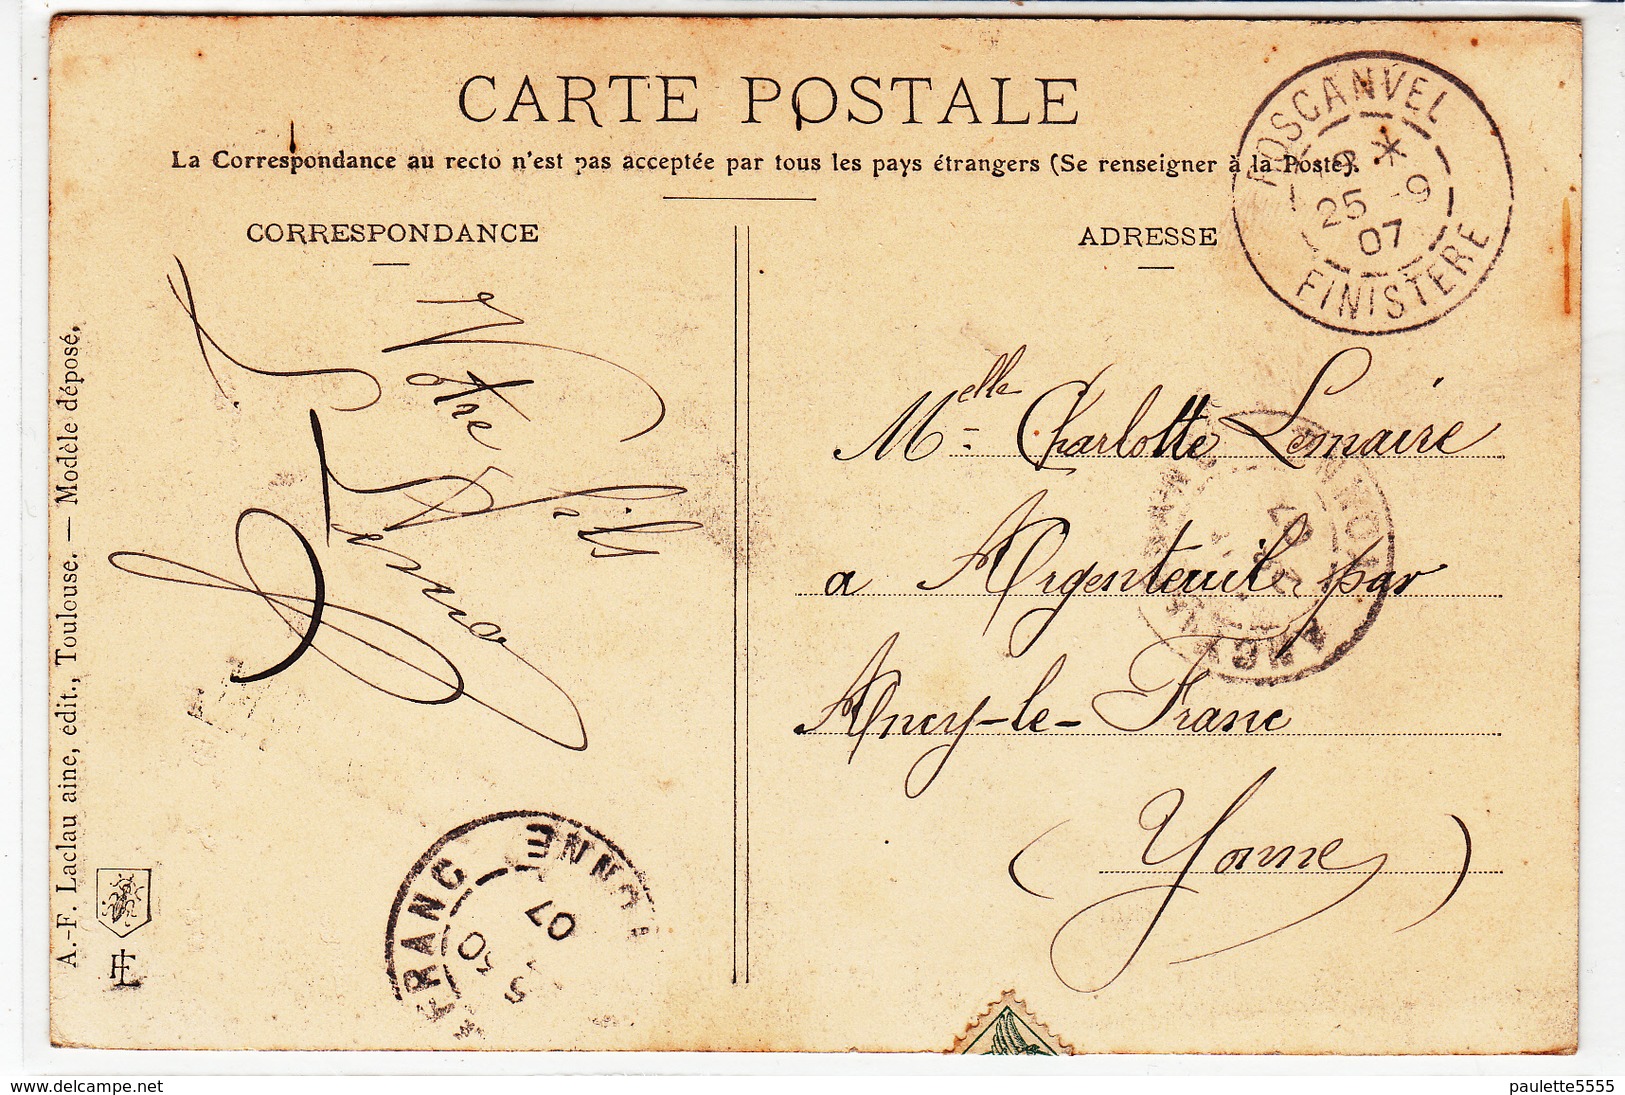 CARTE POSTALE
La Correspondance au recto n'est pas acceptée par tous les pays étrangers (Se renseigner à la Poste).
CORRESPONDANCE
ADRESSE
ROSCANVEL
25 -9
07
FINISTERE
Votre fils
Melle Charlotte Lemaire
a Argenteuil par
Ancy-le-Franc
(Yonne)
YONNE
ANCY
07
FRANC
YONNE
07
5 30
A.-F. Laclau aine, edit., Toulouse. — Modèle déposé,
www.delcampe.net
paulette5555